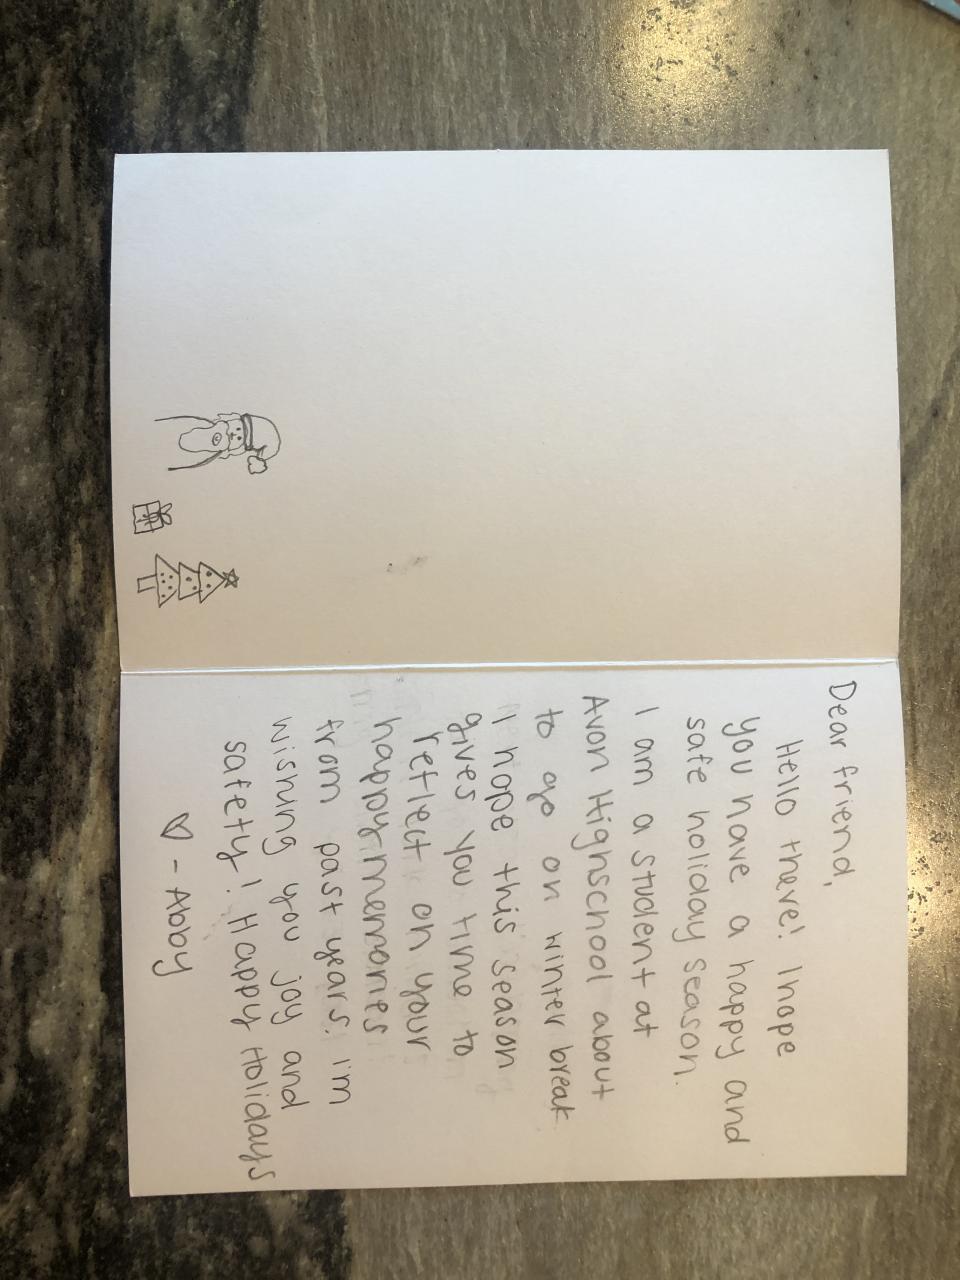 Dear friend,
Hello there! I hope
you have a happy and
safe holiday season.
I am a student at
Avon Highschool about
to go on winter break
I hope this season
gives you time to
reflect on your
happy memories
from past years. I'm
wishing you joy and
safety! Happy Holidays
♡ - Abby